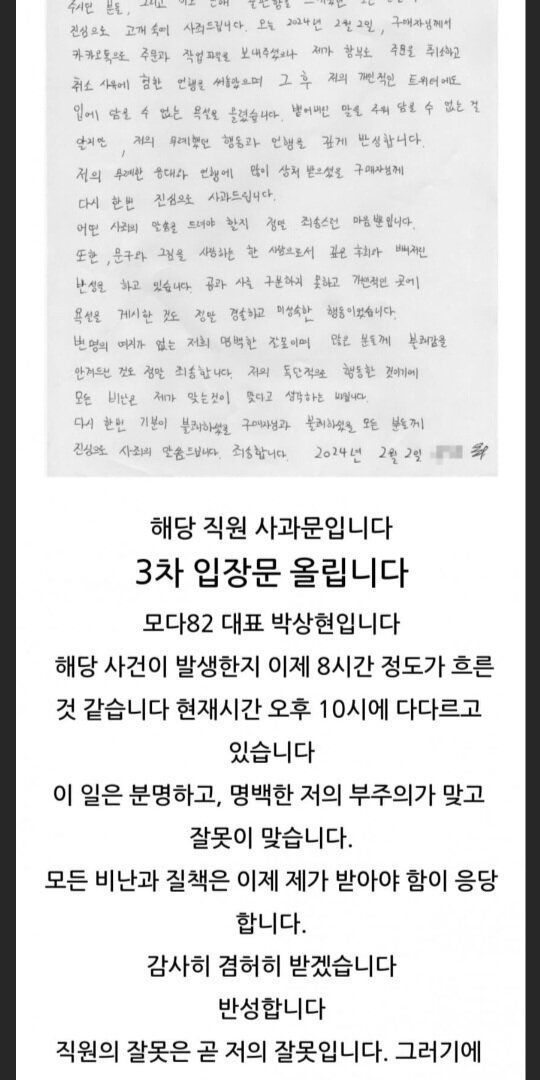 주시던 분들, 그리고 이로 인해
진심으로 고개숙여 사죄드립니다. 오늘 2024년 2월 2일, 구매자님께서
카카오톡으로 주문과 작업파일을 보내주셨으나 제가 함부로 주문을 취소하고
취소 사유에 험한 언행을 써놓았으며 그 후 저의 개인적인 트위터에도
입에 담을 수 없는 욕설을 올렸습니다. 뱉어버린 말을 주워 담을 수 없는 걸
알지만, 저의 무례했던 행동과 언행을 깊게 반성합니다.
저의 무례한 응대와 언행에 많이 상처 받으셨을 구매자님께
다시 한번 진심으로 사과드립니다.
어떤 사죄의 말씀을 드려야 할지 정말 죄송스런 마음뿐입니다.
또한, 문구와 그림을 사랑하는 한 사람으로서 깊은 후회와 뼈저린
반성을 하고 있습니다. 공과 사를 구분하지 못하고 개인적인 곳에
욕설을 게시한 것도 정말 경솔하고 미성숙한 행동이었습니다.
변명의 여지가 없는 저희 명백한 잘못이며 많은 분들께 불쾌감을
안겨드린 것도 정말 죄송합니다. 저의 독단적으로 행동한 것이기에
모든 비난은 제가 맞는것이 맞다고 생각하는 바입니다.
다시 한번 기분이 불쾌하셨을 구매자님과 불쾌하셨을 모든 분들께
진심으로 사죄의 말씀드립니다. 죄송합니다. 2024년 2월 2일
해당 직원 사과문입니다
3차 입장문 올립니다
모다82 대표 박상현입니다
해당 사건이 발생한지 이제 8시간 정도가 흐른
것 같습니다 현재시간 오후 10시에 다다르고
있습니다
이 일은 분명하고, 명백한 저의 부주의가 맞고
잘못이 맞습니다.
모든 비난과 질책은 이제 제가 받아야 함이 응당
합니다.
감사히 겸허히 받겠습니다
반성합니다
직원의 잘못은 곧 저의 잘못입니다. 그러기에